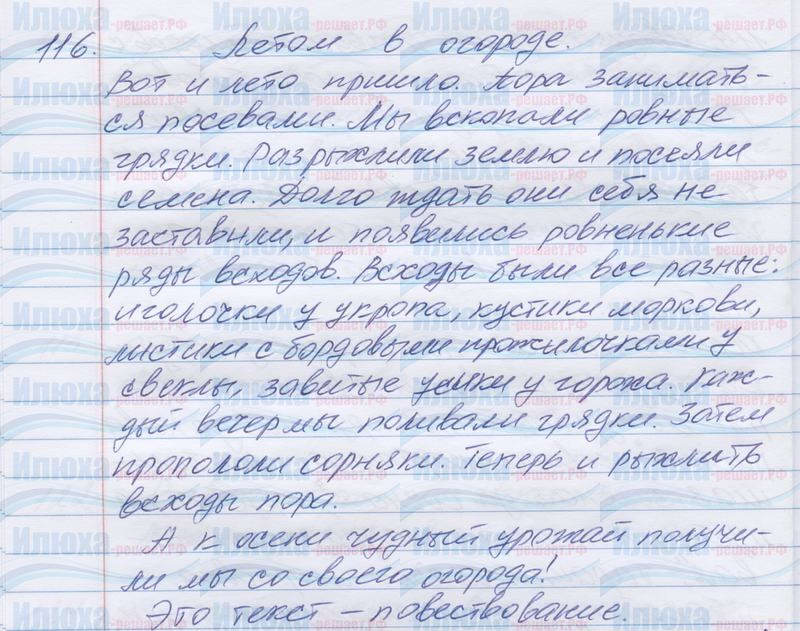 116. Летом в огороде.
Вот и лето пришло. Пора занимать-
ся посевами. Мы вскопали ровные
грядки. Разрыхлили землю и посеяли
семена. Долго ждать они себя не
заставили, и появились ровненькие
ряды всходов. Всходы были все разные:
иголочки у укропа, кустики моркови,
листики с бордовыми прожилочками у
свеклы, завитые усики у гороха. Каж-
дый вечер мы поливали грядки. Затем
пропололи сорняки. Теперь и рыхлить
всходы пора.
А к осени чудный урожай получи-
ли мы со своего огорода!
Это текст – повествование.
Илюха-решает.РФ